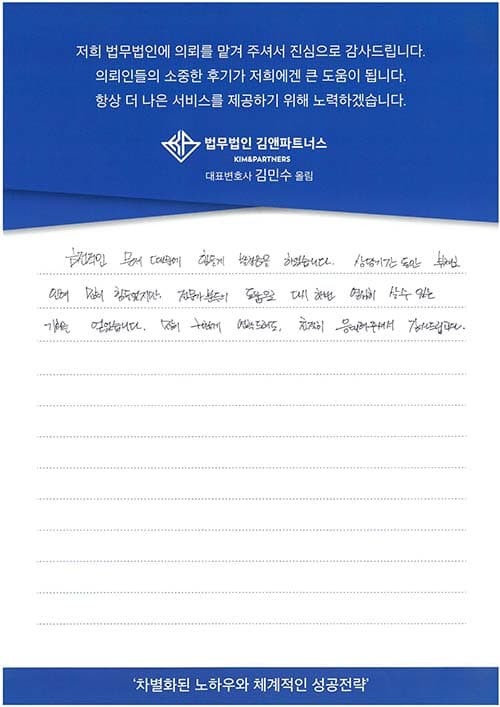 저희 법무법인에 의뢰를 맡겨 주셔서 진심으로 감사드립니다.
의뢰인들의 소중한 후기가 저희에겐 큰 도움이 됩니다.
항상 더 나은 서비스를 제공하기 위해 노력하겠습니다.
법무법인 김앤파트너스
KIM&PARTNERS
대표변호사 김민수 올림
금전적인 문제 때문에 힘들게 하였습니다. 상당기간 동안
힘들었지만, 도움으로 다시 한번 열심히 살 수 있는
기회를 얻었습니다. 친절히 응대해주셔서 감사드립니다.
'차별화된 노하우와 체계적인 성공전략'